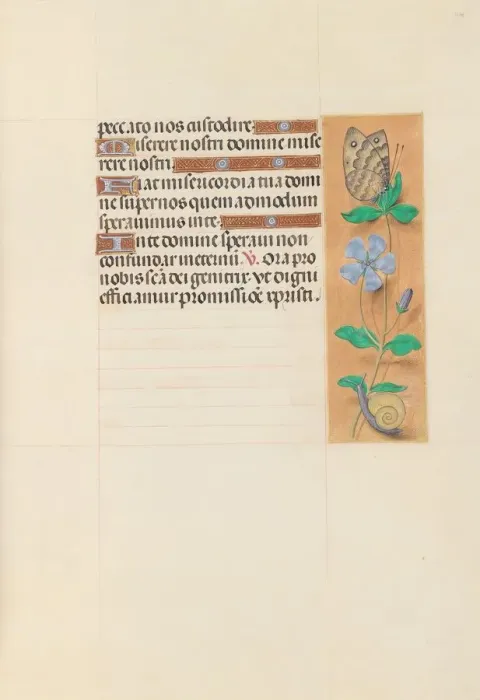 peccato nos custodire.
Miserere nostri domine mise
rere nostri.
Fiat misericordia tua domi
ne super nos quemadmodum
speravimus in te.
In te domine speravi non
confundar in eternū. V. Ora pro
nobis scā dei genitrix. Vt digni
efficiamur promissiōē xpristi.